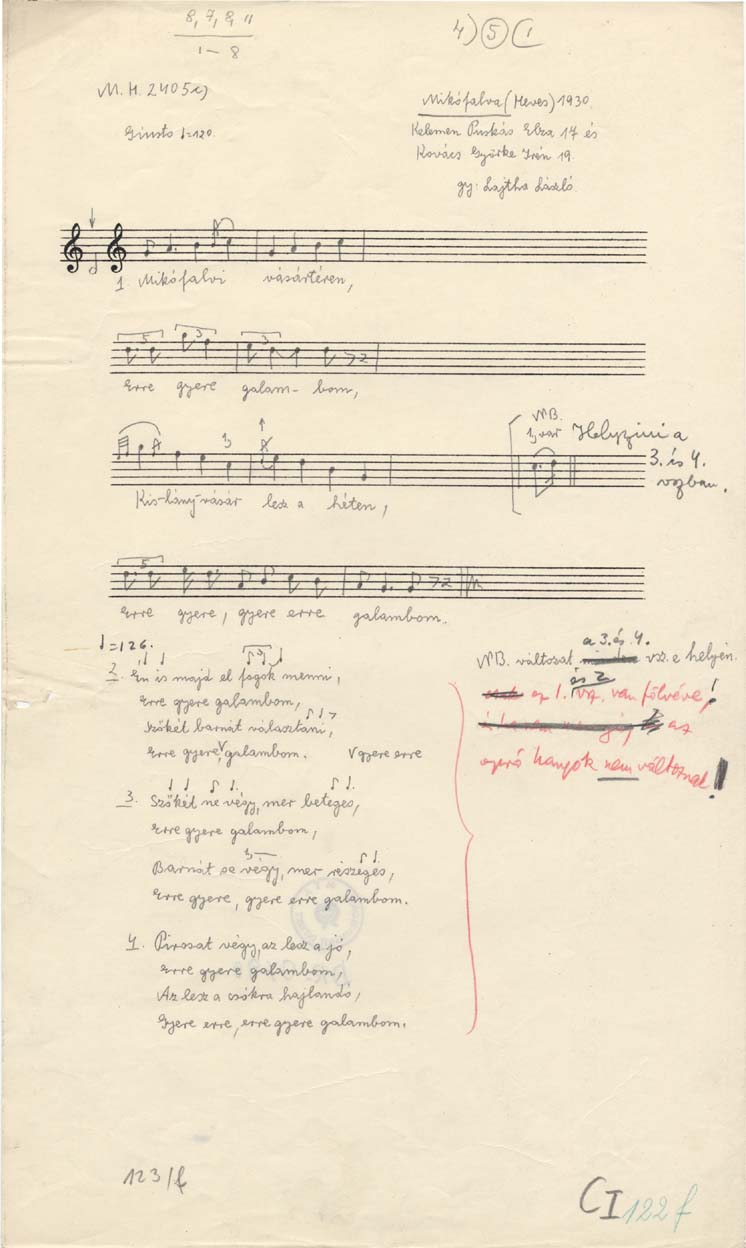 8, 7, 8, 11
1 – 8
4) 5 (1
M. H. 2405 c)
Mikófalva (Heves) 1930.
Giusto ♩=120.
Kelemen Puskás Elza 17 és
Kovács Györke Irén 19.
gy: Lajtha László.
1. Mikófalvi vásártéren,
5 3 3
Erre gyere galam- bom,
NB.
1. var Helyzini a
3. és 4.
vszban.
3
Kis-lány-vásár lesz a héten,
5
Erre gyere, gyere erre galambom.
♩=126.
2. Én is majd el fogok menni,
Erre gyere galambom,
Szőkét barnát választani,
Erre gyere, galambom. V gyere erre
a 3. és 4.
NB. változat vsz. e helyén.
és 2
az 1. vsz. van fölvéve,!
az
apró hangok nem változnak!
3. Szőkét ne végy, mer beteges,
Erre gyere galambom,
Barnát se végy, mer részeges,
Erre gyere, gyere erre galambom.
4. Pirosat végy, az lesz a jó,
Erre gyere galambom,
Az lesz a csókra hajlandó,
Gyere erre, erre gyere galambom.
123/f
CI 122 f